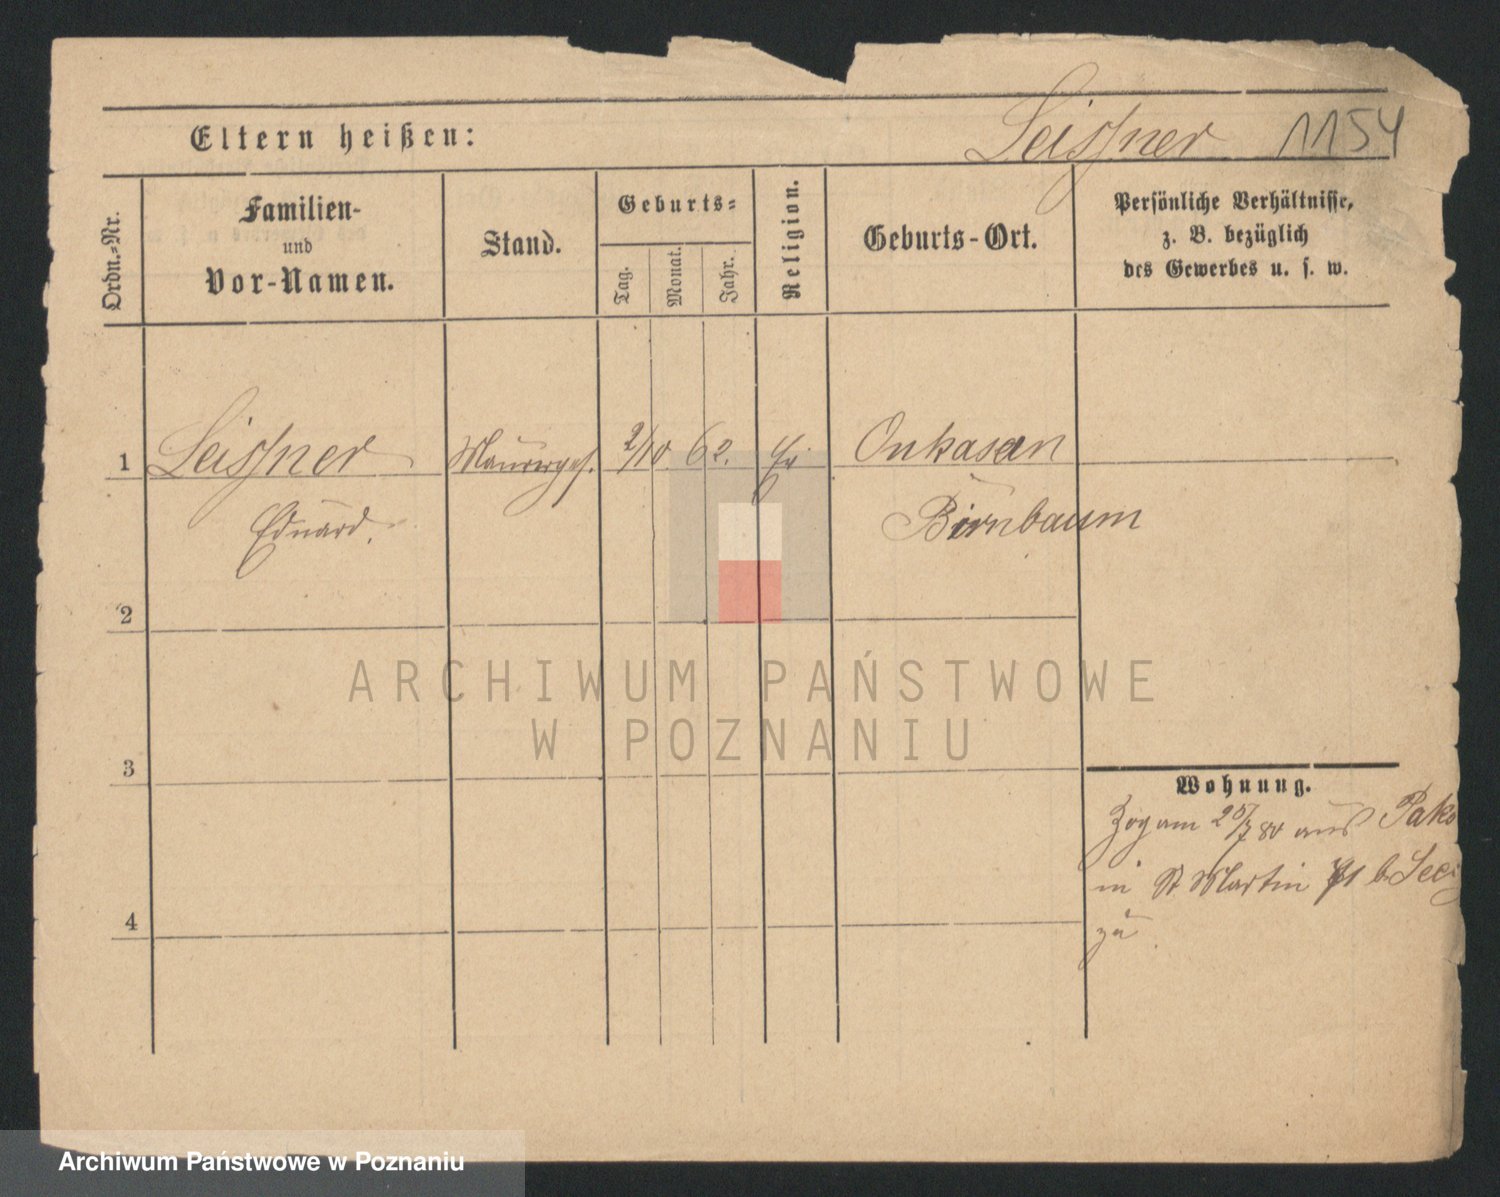 Eltern heißen:
Leissner 1154
Ordn.-Nr.
Familien-
und
Vor-Namen.
Stand.
Geburts-
Tag.
Monat.
Jahr.
Religion.
Geburts-Ort.
Persönliche Verhältnisse,
z. B. bezüglich
des Gewerbes u. s. w.
1 Leissner Maurerges. 2/10 62. Onkasan
Eduard. Birnbaum
2
3
4
Wohnung.
Zog am 25/7 80 aus Pako
in St Martin b.
zu
ARCHIWUM PAŃSTWOWE
W POZNANIU
Archiwum Państwowe w Poznaniu